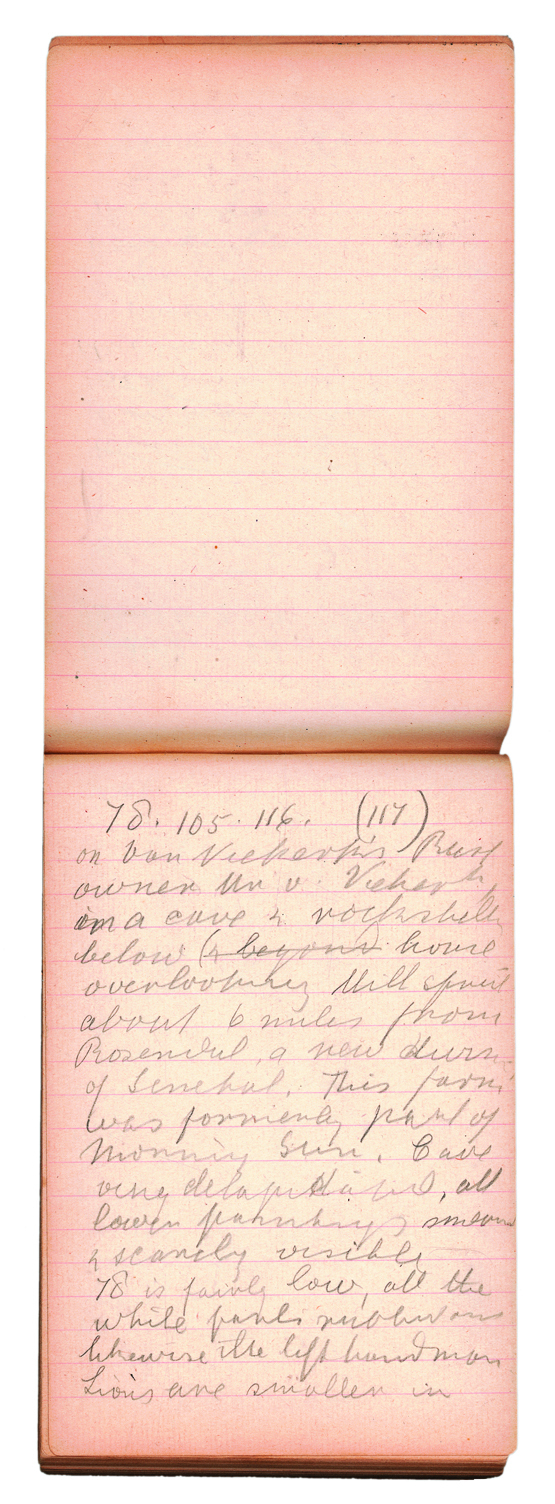 78. 105. 116. (117)
on Van Niekerk's Rust
owner Mr v. Niekerk,
in a cave & rockshelter
below (& beyond) house
overlooking Mill spruit
about 6 miles from
Rosendal, a new
of Senekal. This farm
was formerly part of
Morning Sun. Cave
very delapidated, all
lower paintings smeared
& scarcely visible
78 is fairly low, all the
white parts rubbed out
likewise the left hand man
Lions are smaller in